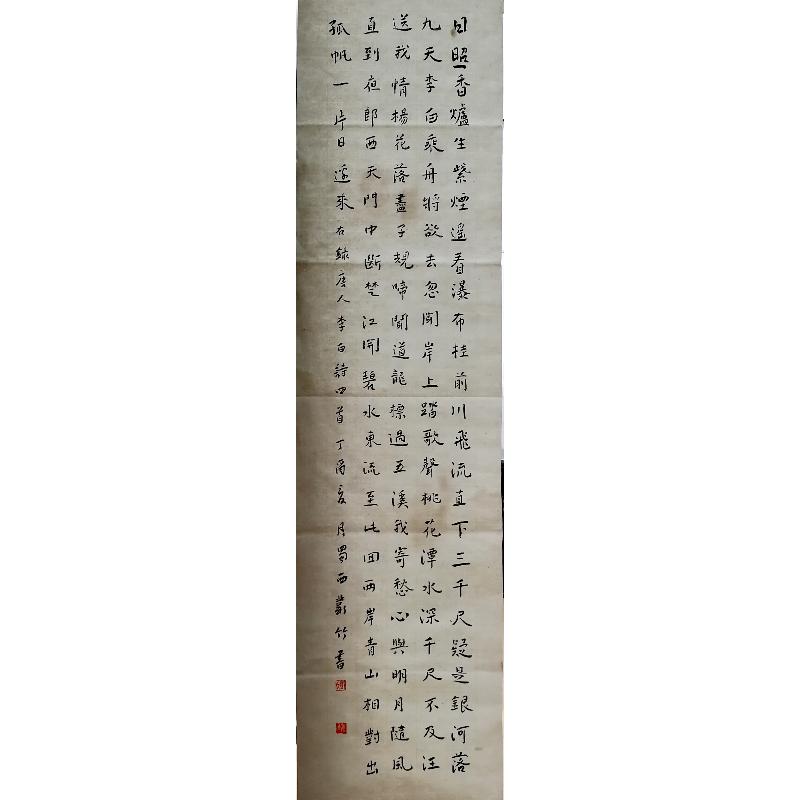 日照香爐生紫煙遙看瀑布挂前川飛流直下三千尺疑是銀河落
九天李白乘舟將欲去忽聞岸上踏歌聲桃花潭水深千尺不及汪
送我情楊花落盡子規啼聞道龍標過五溪我寄愁心與明月隨風
直到夜郎西天門中斷楚江開碧水東流至此回兩岸青山相對出
孤帆一片日邊來右錄唐人李白詩四首丁酉夏月蜀西竹書